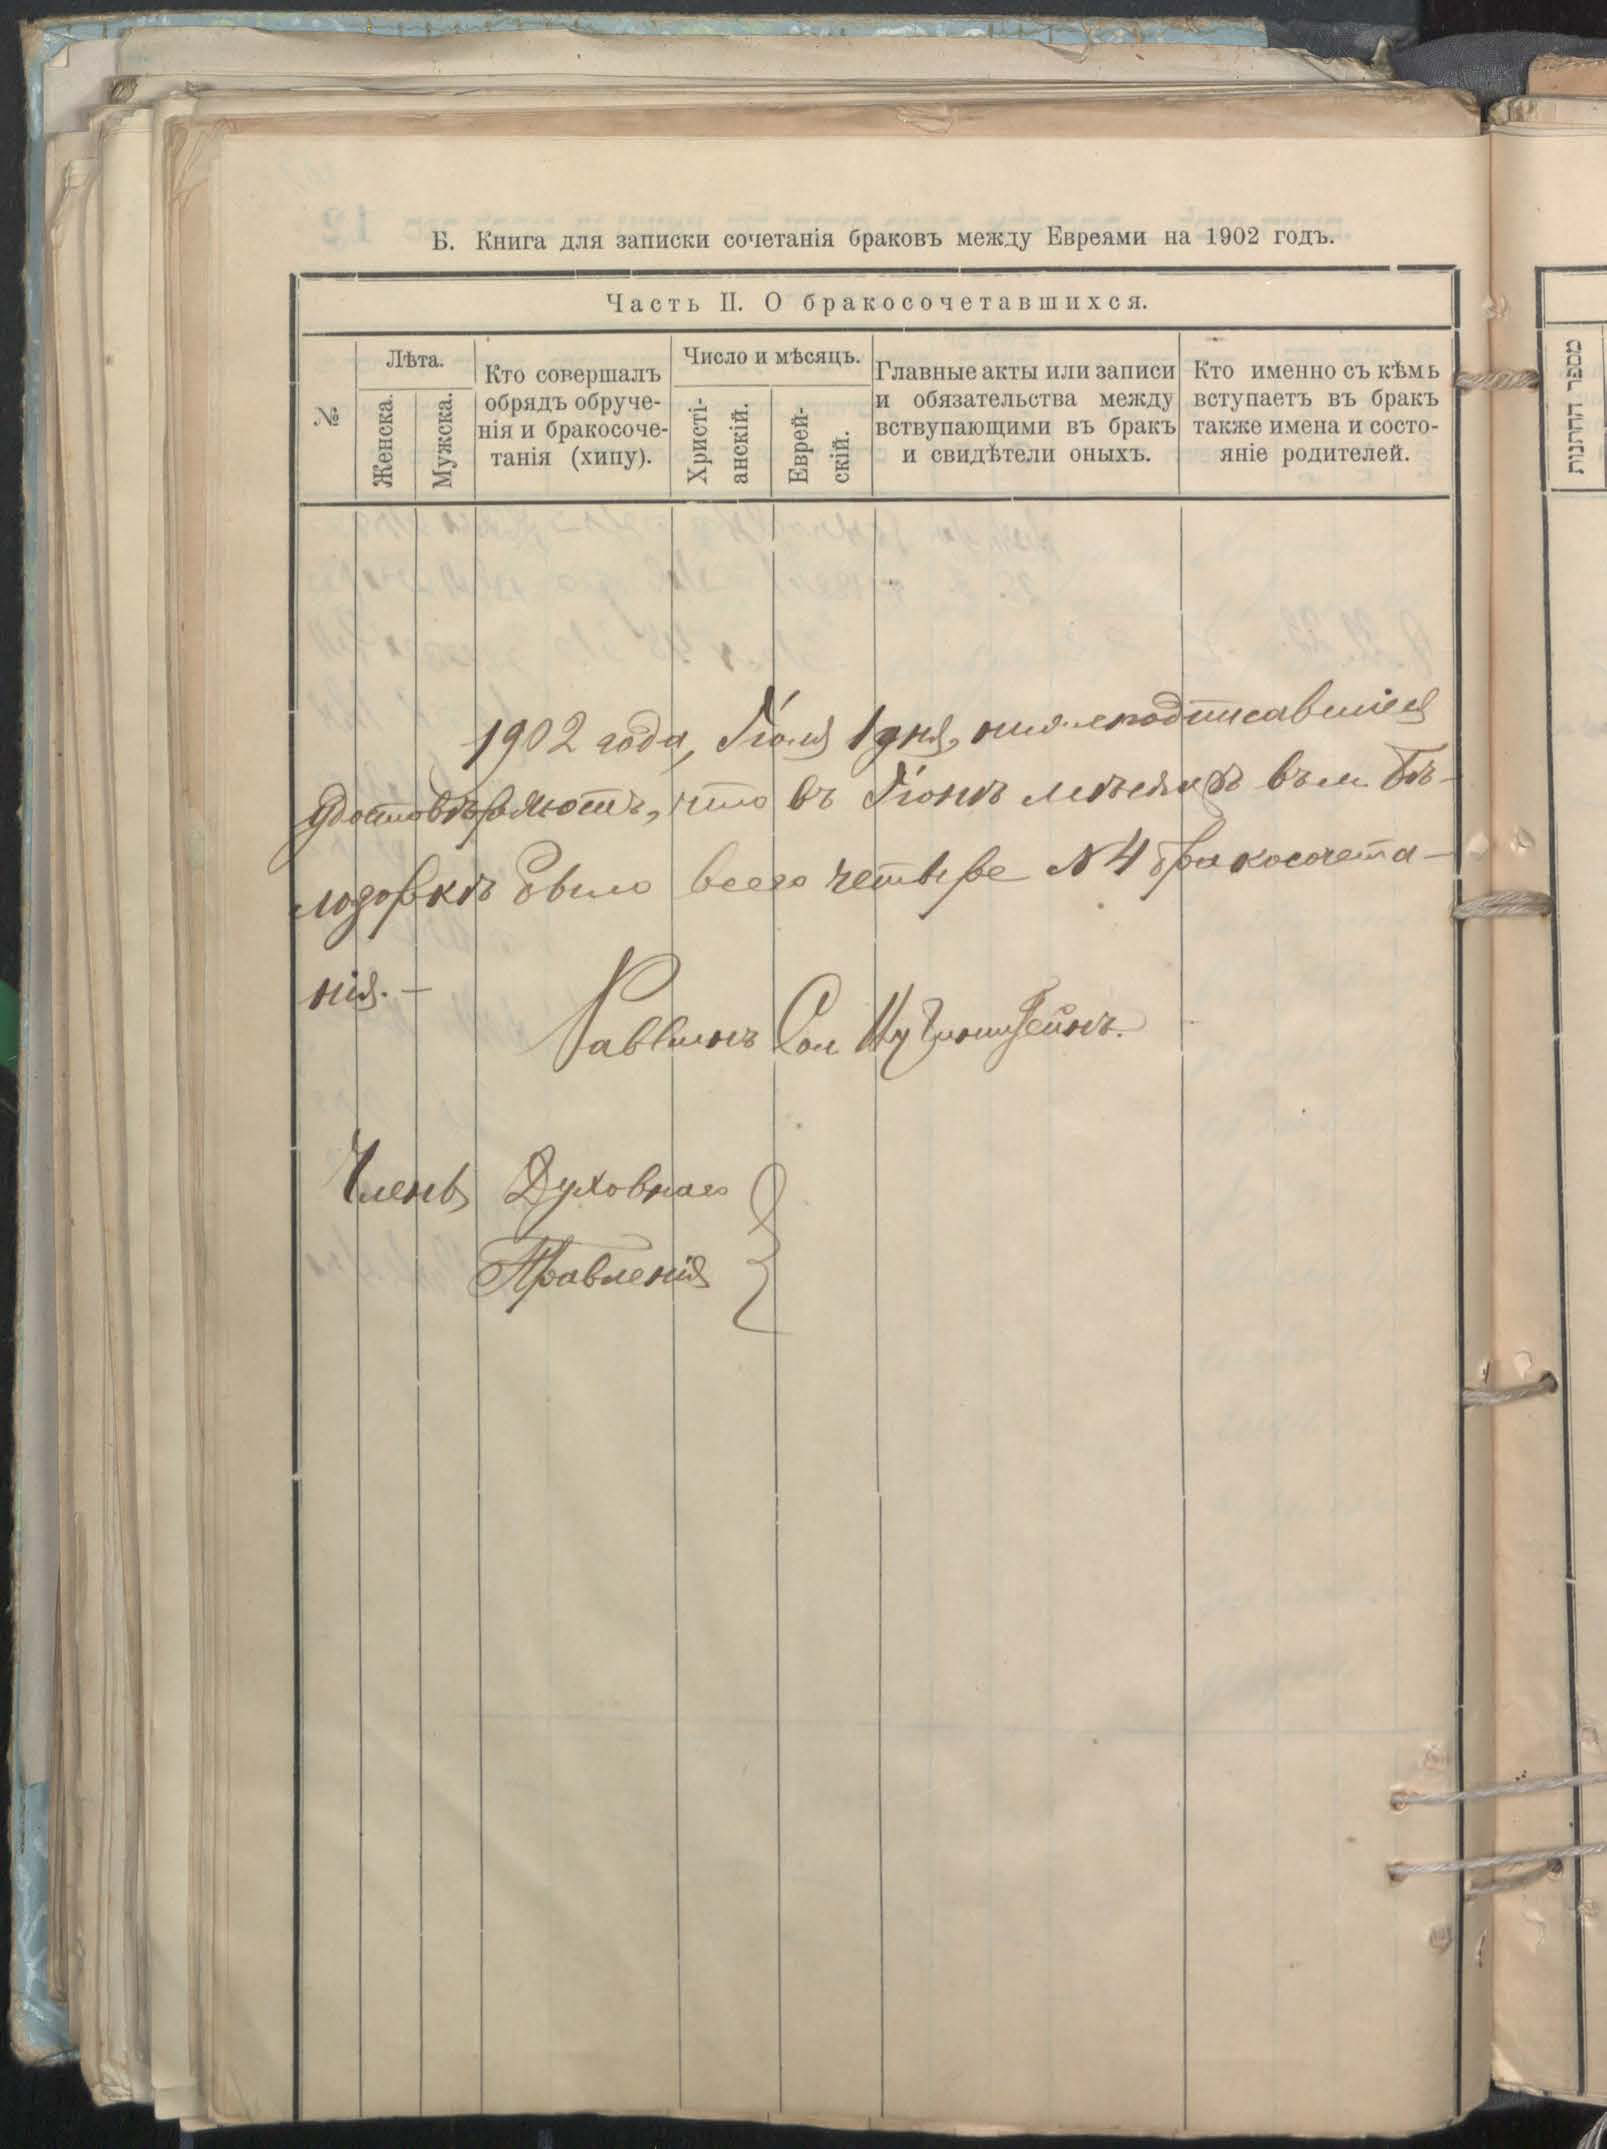 Б. Книга для записки сочетанія браковъ между Евреями на 1902 годъ.
Часть II. О бракосочетавшихся.
№
Лѣта.
Женска.
Мужска.
Кто совершалъ
обрядъ обруче-
нія и бракосоче-
танія (хипу).
Число и мѣсяцъ.
Христі-
анскій.
Еврей-
скій.
Главные акты или записи
и обязательства между
вствупающими въ бракъ
и свидѣтели оныхъ.
Кто именно съ кѣмь
вступаетъ въ бракъ
также имена и состо-
яніе родителей.
1902 года, Іюля 1 дня, нижеподписавшіеся
удостовѣряютъ, что въ Іюнѣ мѣсяцѣ въ м. Бѣ-
лозоркѣ было всего четыре № 4 бракосочета-
нія. —
Раввинъ Сол
Члены Духовнаго
Правленія
מספר החתנות